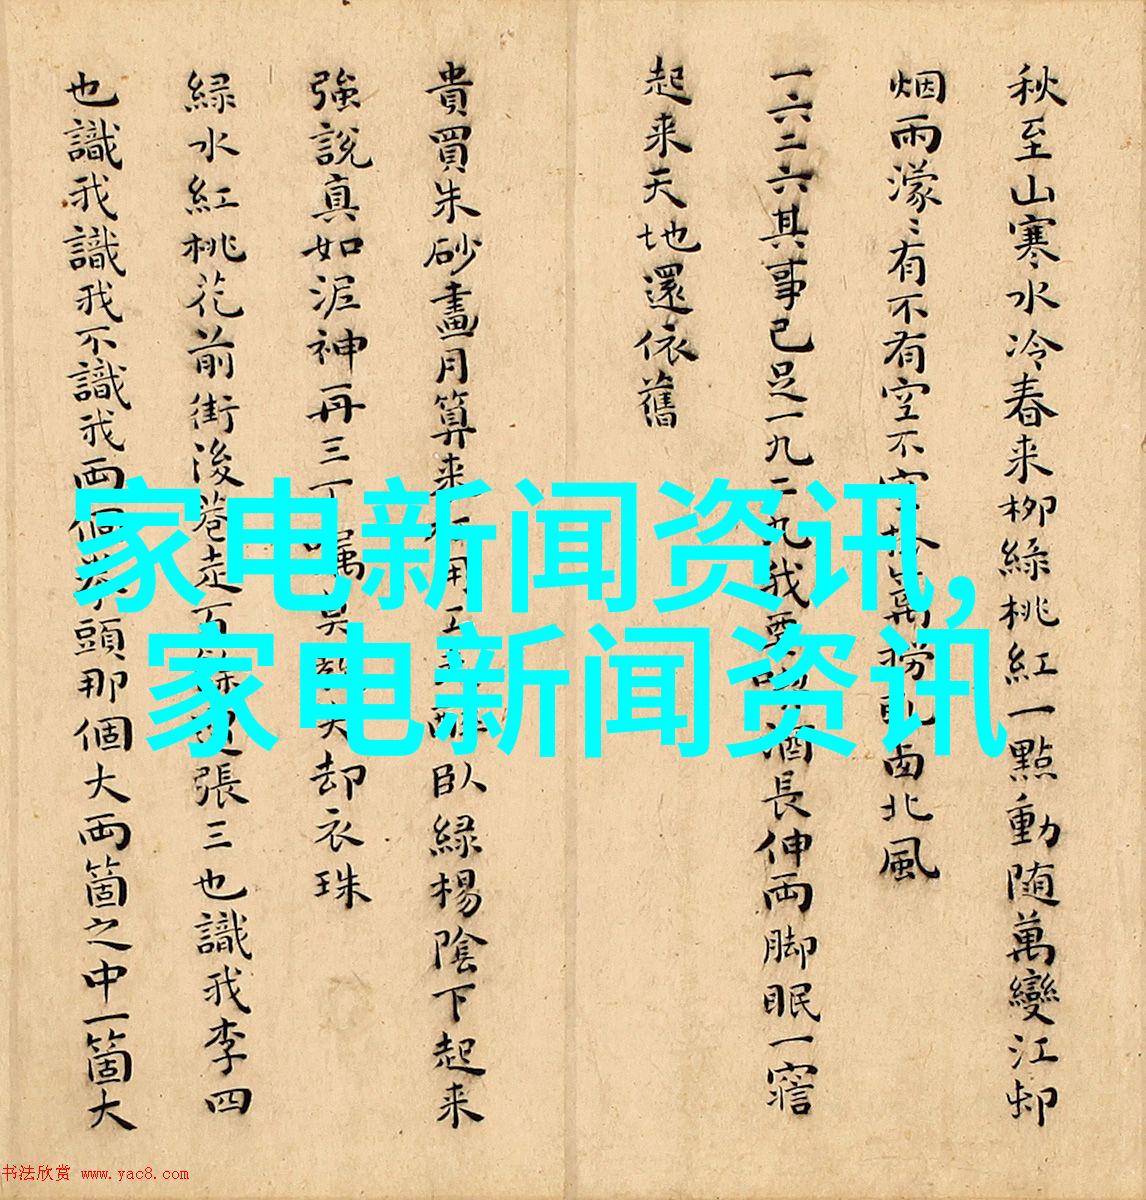 秋至山寒水冷春来柳緑桃紅一點動随萬變江邨
烟雨濛〻有不有空不空笊籬撈乱西北風
一六二六其事已足一九二九我要喫酒長伸両脚眠一寤
起来天地還依舊
貴買朱砂畫月算来用工醉臥緑楊陰下起来
強說真如泥神再三丁囑莫教失却衣珠
緑水紅桃花前街後巷走百餘遭張三也識我李四
也識我識我不識我両個拳頭那個大両箇之中一箇大
家电新闻资讯,
家电新闻资讯
书法欣赏 www.yac8.com